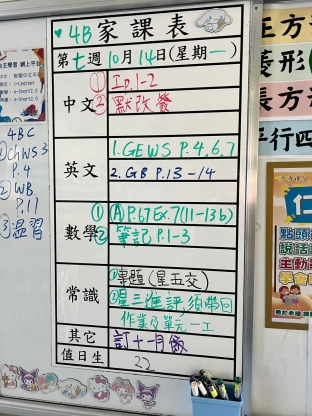 4B 家課表
第七週 10月14日(星期一)
中文
① I.D.1-2
② 默改簽
英文
1. GEWS P.4,6,7
2. GB P.13-14
數學
① (A)P.67 Ex.7(11-13b)
② 筆記 P.1-3
常識
①專題(星五交)
②星三進評,須帶回
作業及單元一工
其它
訂十一月飯
值日生
22
4BC
① ChWS 3
P.4
② WB
P.11
③ 溫習
正方
菱形
長方
平行四
點頭
說話
主動
學會